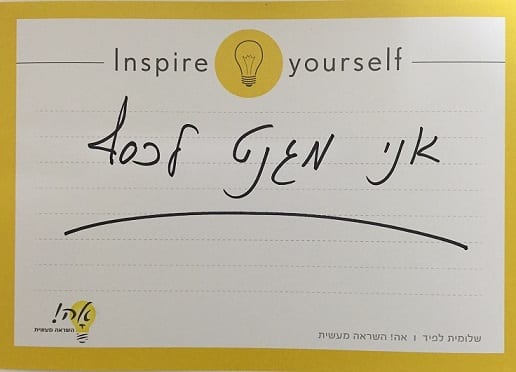 Inspire yourself
אני מגנט לכסף
אה!
השראה מעשית
שלומית לפיד | אה! השראה מעשית